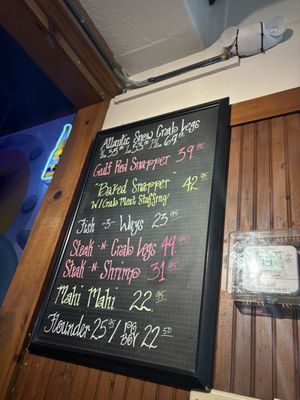 Atlantic Snow Crab Legs
Gulf Red Snapper 39.95
"Baked Snapper" 42.95
w/ Crab Meat Stuffing
Fish -3- Ways 23.95
Steak -N- Crab Legs 49.95
Steak -N- Shrimp 31.95
Mahi Mahi 22.95
Flounder 25.95/ 22.50